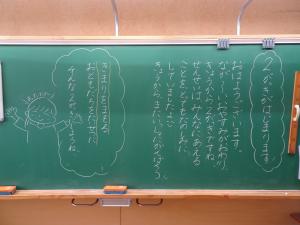 2がっきがはじまります。
おはようございます。
ながーいおやすみがおわり、
きょうから2がっきですね。
せんせいは、みんなにあえる
ことをとてもたのしみに
していましたよ。
きょうから またいっしょにがんばろう
きまりをまもる
おともだちをたいせつに
そんな2がっきにしようね。